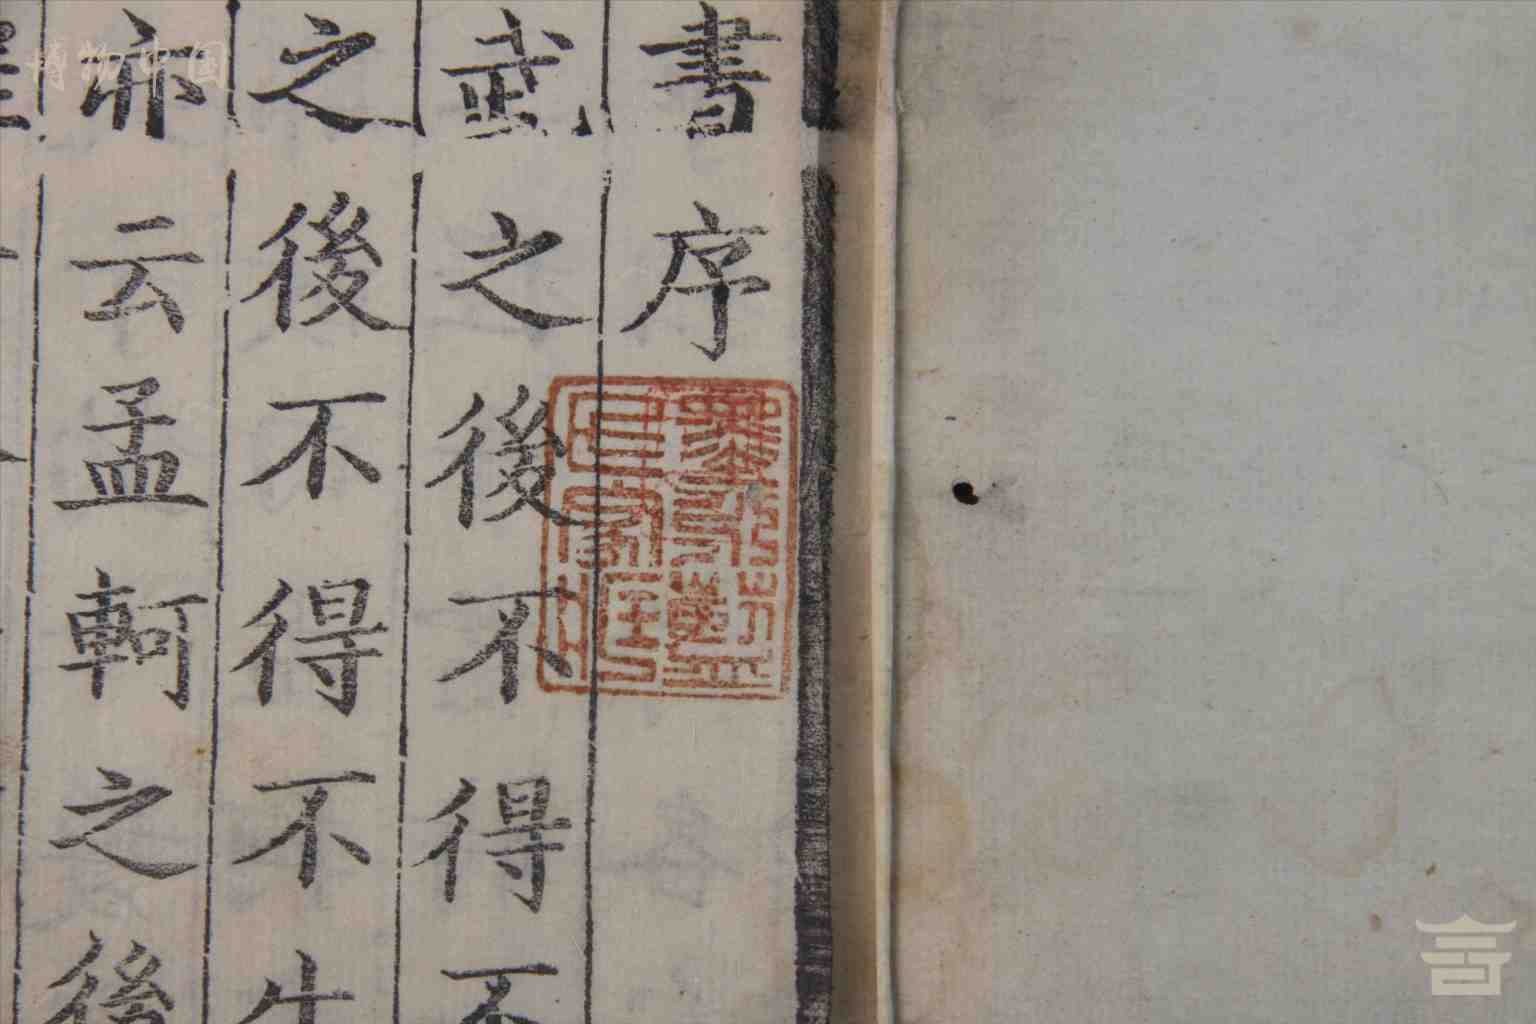 書序
武之後不得不
之後不得不生
亦云孟軻之後
博物中国